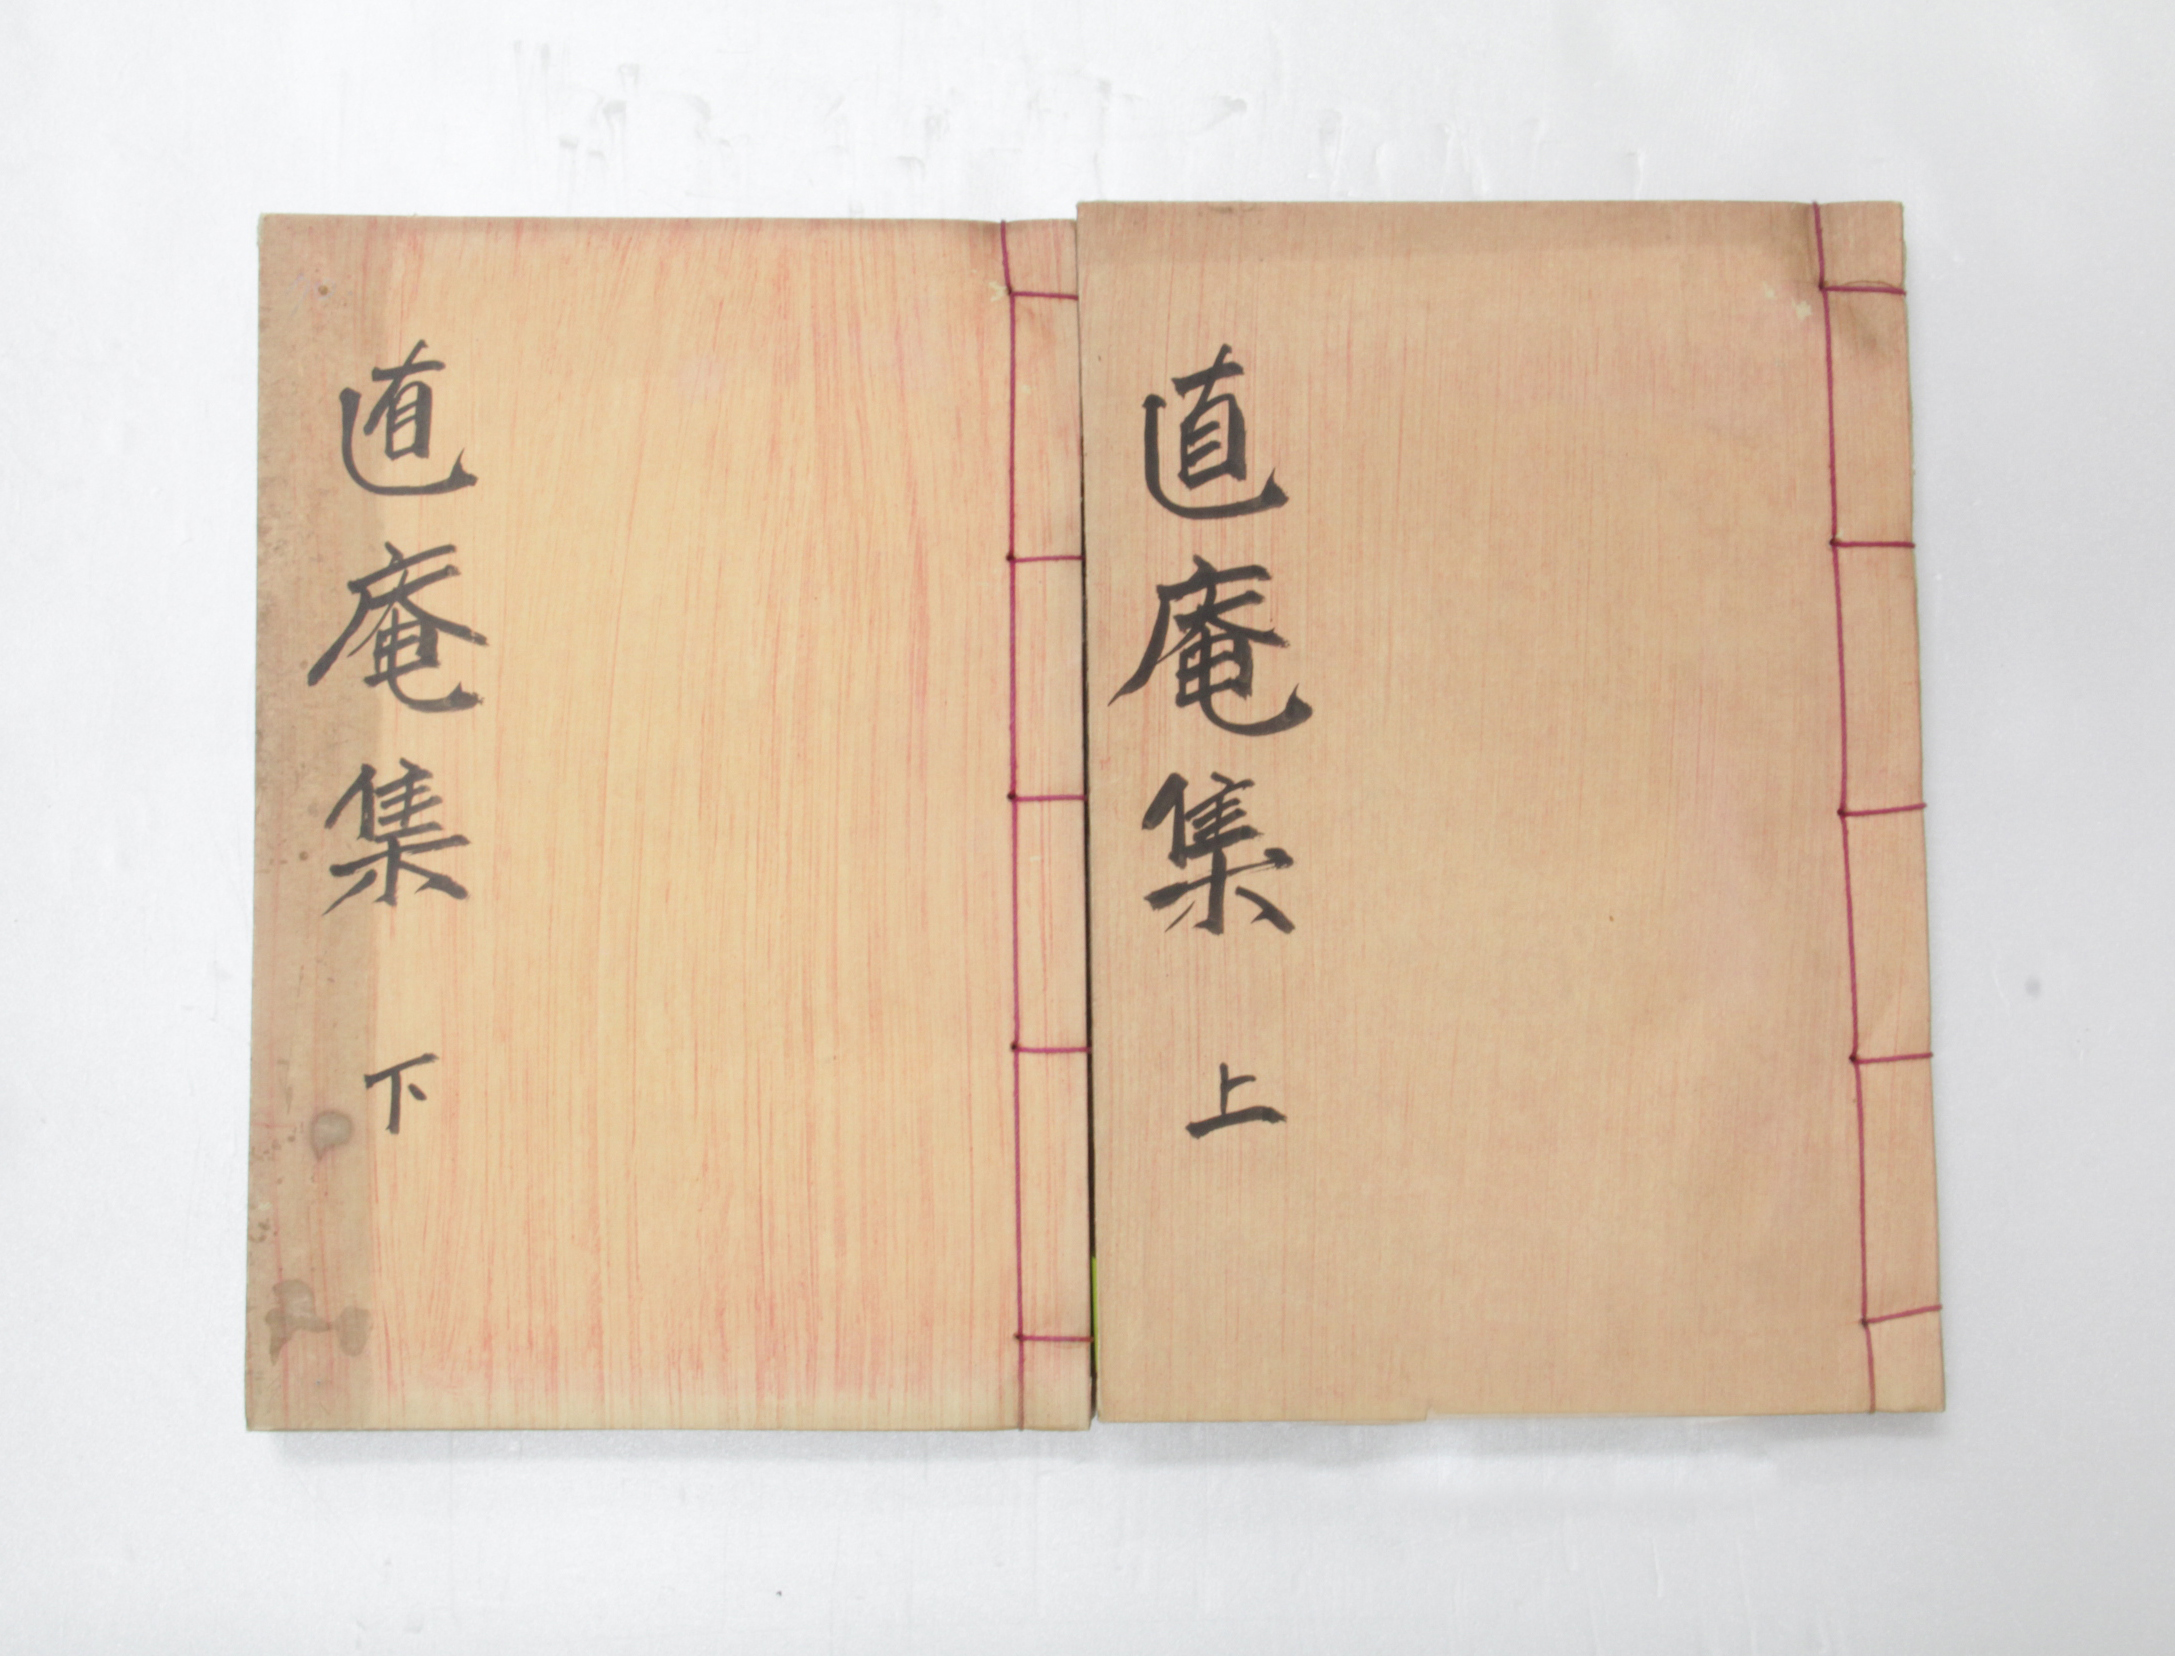 直庵集 上
直庵集 下